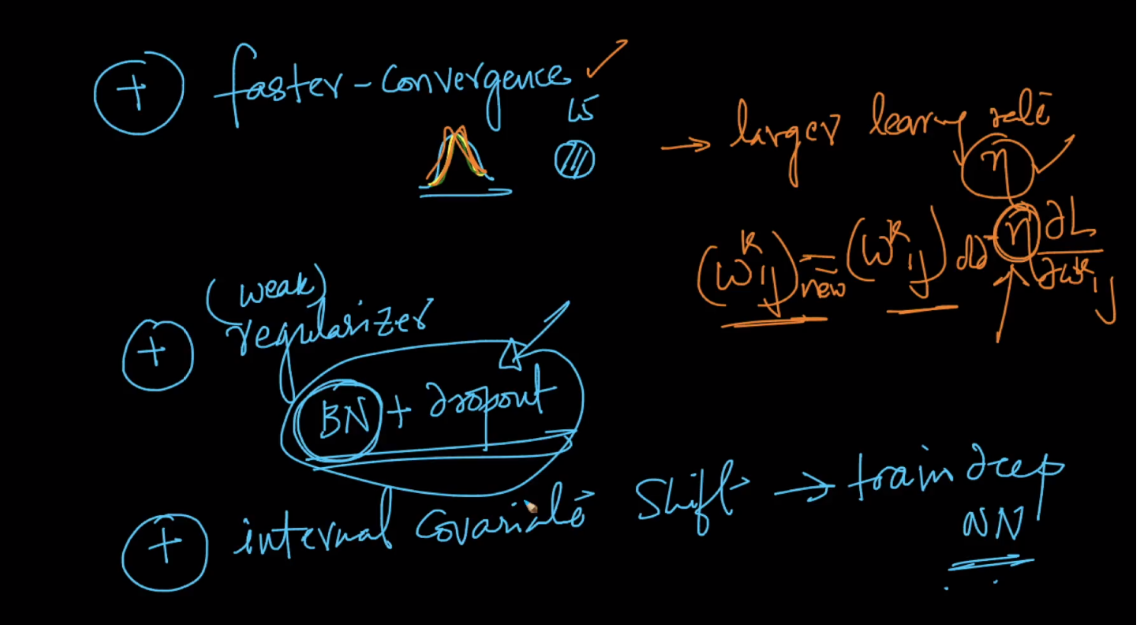 + faster-convergence
→ larger learning rate
η
(w^k_ij)_new = (w^k_ij)_old - η ∂L/∂w^k_ij
(weak)
+ regularizer
BN + dropout
+ internal Covariate Shift → train deep
NN